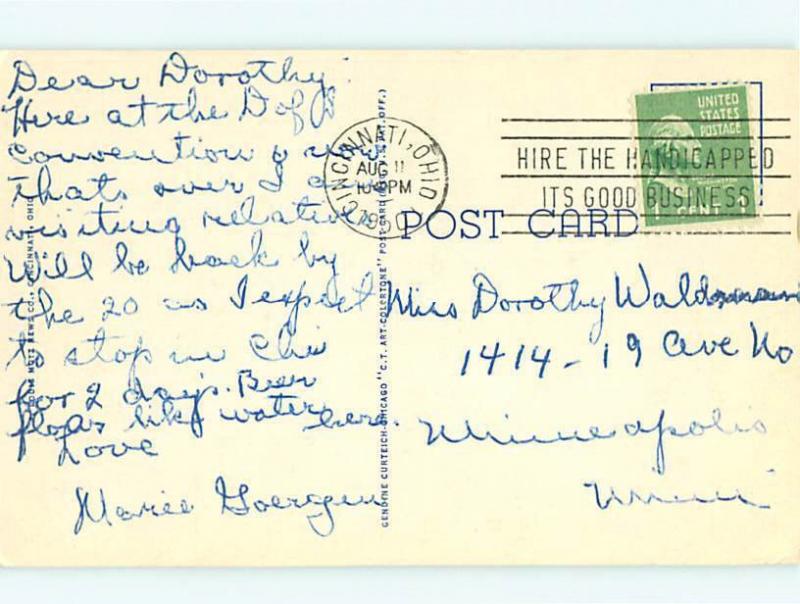 Dear Dorothy
Here at the D of
Convention & now
thats over I a
visiting relative
Will be back by
the 20 as I expect
to stop in Chi
for 2 days. Beer
flows like water
here.
Love
Marie Goergen
CINCINNATI, OHIO
AUG 11
PM
1950
HIRE THE HANDICAPPED
ITS GOOD BUSINESS
UNITED
STATES
POSTAGE
1 CENT
POST CARD
Miss Dorothy
1414-19 Ave No
Minneapolis
Minn
GENUINE CURTEICH-CHICAGO "C.T. ART-COLORTONE" POST CARD
NEWS CO., CINCINNATI, OHIO